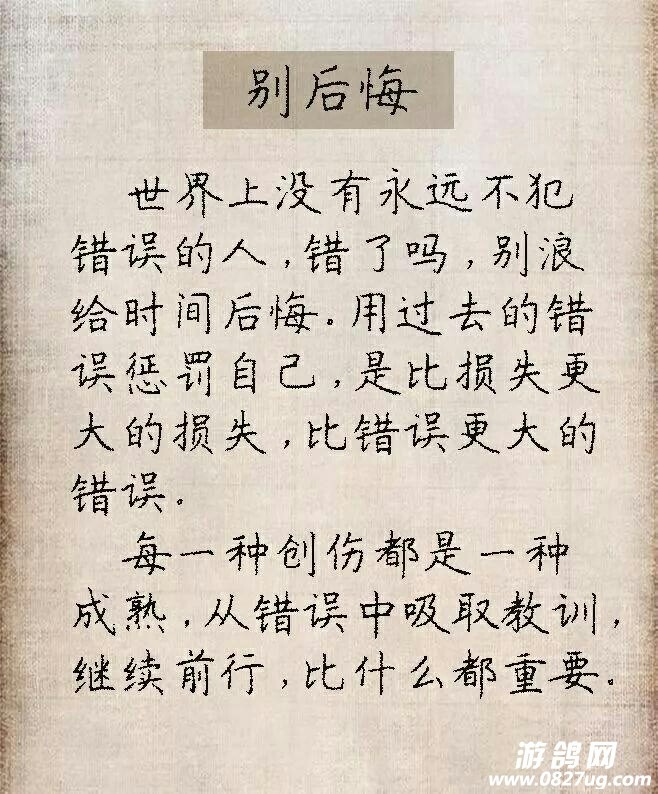 别后悔
世界上没有永远不犯
错误的人,错了吗,别浪
给时间后悔。用过去的错
误惩罚自己,是比损失更
大的损失,比错误更大的
错误。
每一种创伤都是一种
成熟,从错误中吸取教训,
继续前行,比什么都重要。
游鸽网
www.0827ug.com